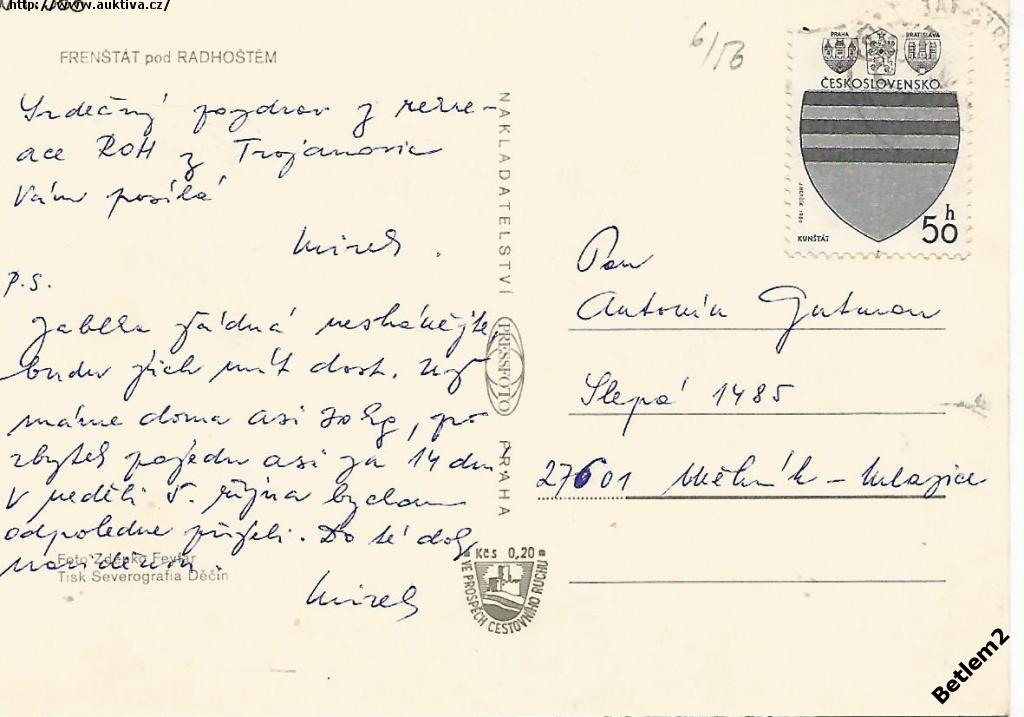 http://www.auktiva.cz/
FRENŠTÁT pod RADHOŠTĚM
6/56
Srdečný pozdrav z rekre-
ace ROH z Trojanovic
Vám posílá
Mirek.
P.S.
Jablka žádná neshánějte,
budu jich mít dost. Už
máme doma asi 30 kg, pro
zbytek pojedu asi za 14 dnů
V neděli 5. října bychom
odpoledne přijeli. Do té doby
nasbíráme
Mirek
Foto Zdenko Feyfar
Tisk Severografia Děčín
NAKLADATELSTVÍ
PRESSFOTO
PRAHA
Kčs 0,20
VE PROSPĚCH CESTOVNÍHO RUCHU
PRAHA
BRATISLAVA
ČESKOSLOVENSKO
KUNŠTÁT
50 h
Pan
Antonín Gutman
Slepá 1485
27601 Mělník - Mlazice
Betlem2